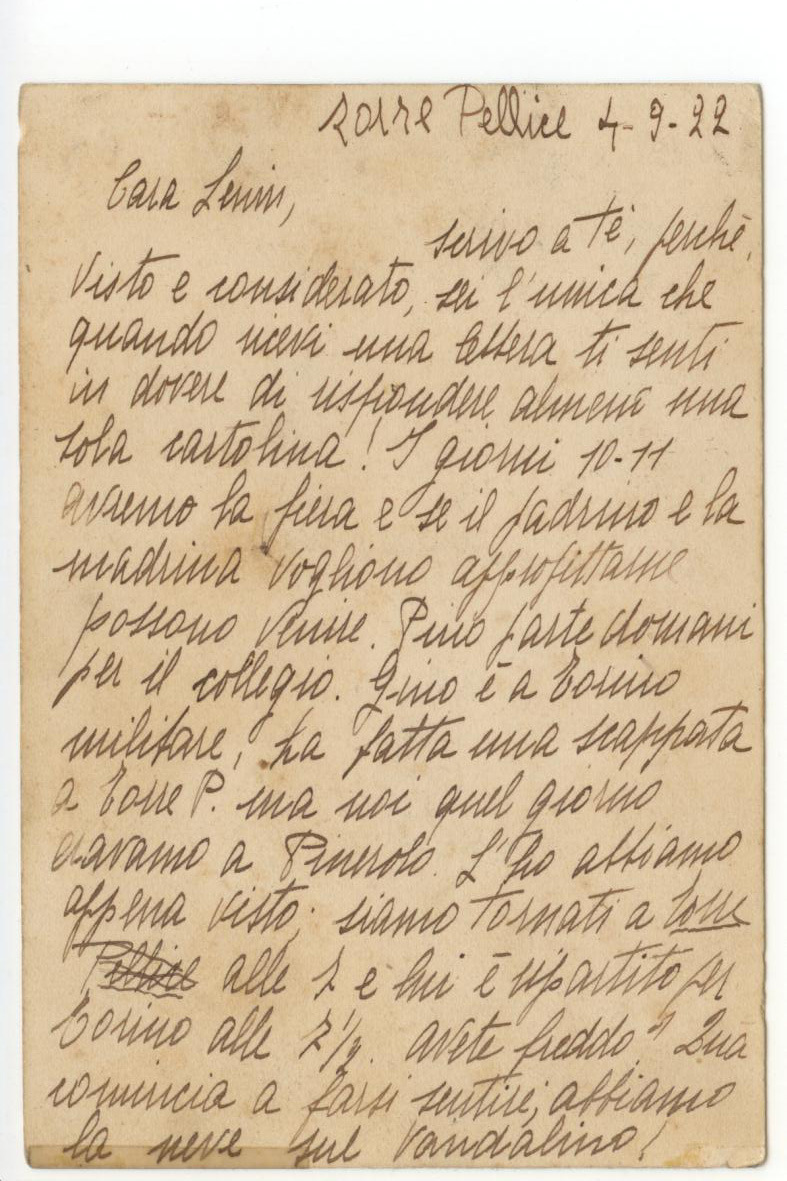 Torre Pellice 4-9-22
Cara Lenin,
scrivo a te, perchè,
visto e considerato, sei l'unica che
quando ricevi una lettera ti senti
in dovere di rispondere almeno una
sola cartolina! I giorni 10-11
avremo la fiera e se il padrino e la
madrina vogliono approfittarne
possono venire. Pino parte domani
per il collegio. Gino è a Torino
militare, ha fatta una scappata
a Torre P. ma noi quel giorno
eravamo a Pinerolo. L'ho abbiamo
appena visto; siamo tornati a Torre
Pellice alle 7 e lui è ripartito per
Torino alle 7½. avete freddo? Qua
comincia a farsi sentire; abbiamo
la neve sul Vandalino!